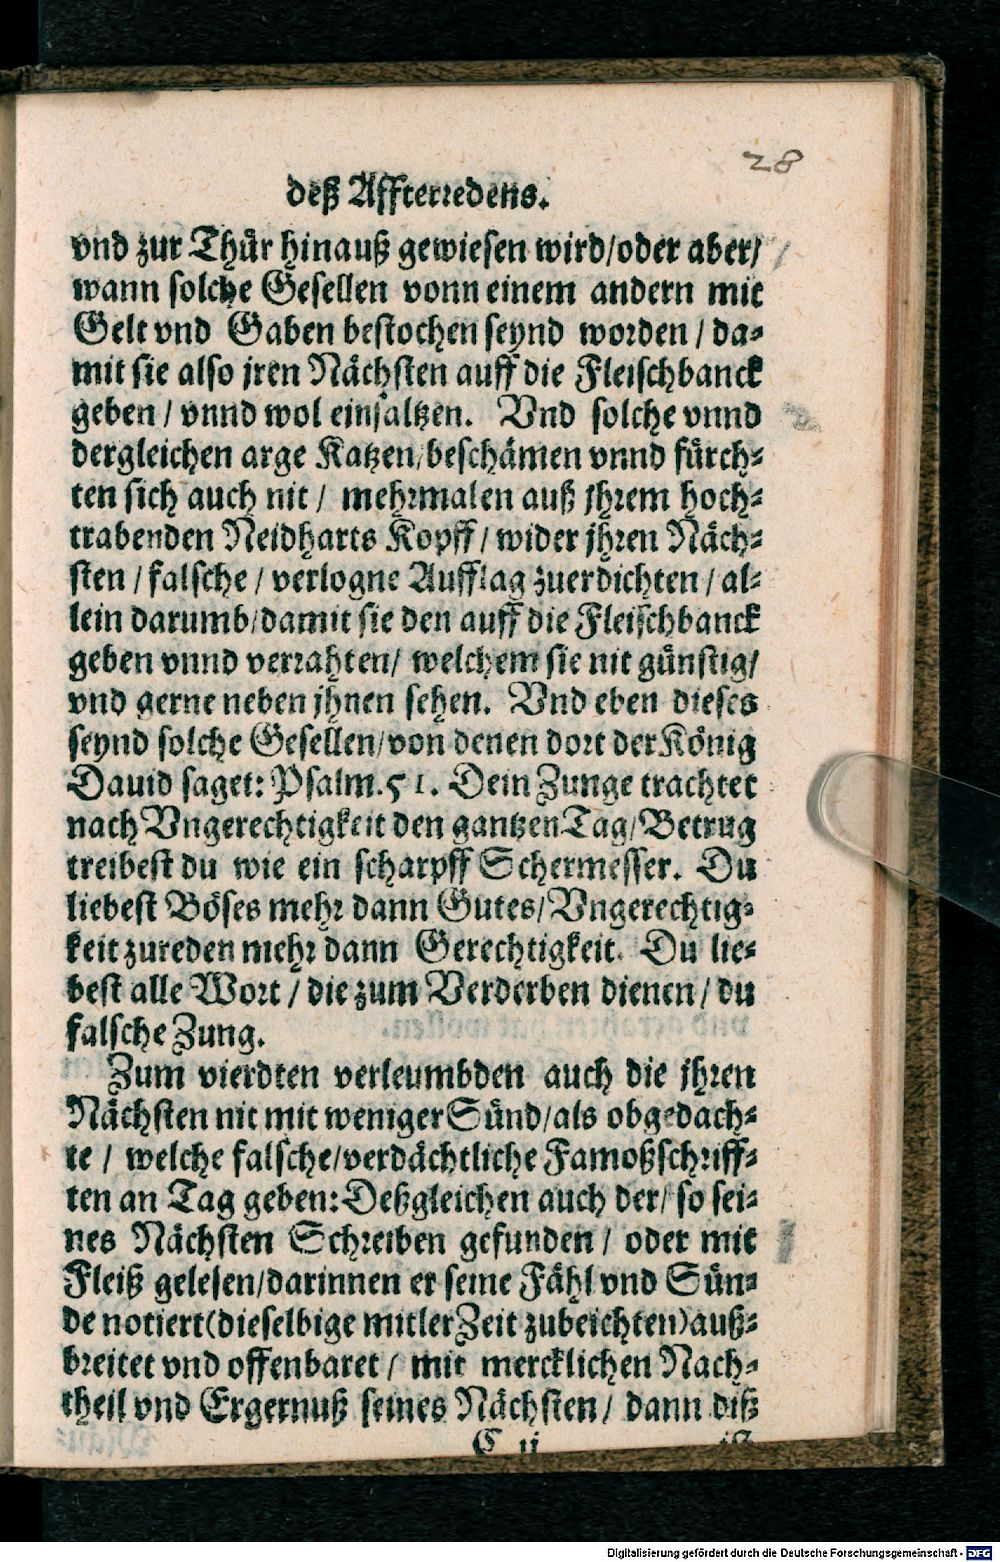 28
deß Affterredens.
vnd zur Thür hinauß gewiesen wird/oder aber/
wann solche Gesellen vonn einem andern mit
Gelt vnd Gaben bestochen seynd worden / da-
mit sie also jren Nächsten auff die Fleischbanck
geben / vnnd wol einsaltzen. Vnd solche vnnd
dergleichen arge Katzen/beschämen vnnd fürch-
ten sich auch nit / mehrmalen auß jhrem hoch-
trabenden Neidharts Kopff / wider jhren Näch-
sten / falsche / verlogne Aufflag zuerdichten / al-
lein darumb/damit sie den auff die Fleischbanck
geben vnnd verrahten/ welchem sie nit günstig/
vnd gerne neben jhnen sehen. Vnd eben dieses
seynd solche Gesellen/von denen dort der König
Dauid saget: Psalm. 51. Dein Zunge trachtet
nach Vngerechtigkeit den gantzen Tag/Betrug
treibest du wie ein scharpff Schermesser. Du
liebest Böses mehr dann Gutes/Vngerechtig-
keit zureden mehr dann Gerechtigkeit. Du lie-
best alle Wort / die zum Verderben dienen / du
falsche Zung.
Zum vierdten verleumbden auch die jhren
Nächsten nit mit weniger Sünd/als obgedach-
te / welche falsche/verdächtliche Famoßschriff-
ten an Tag geben: Deßgleichen auch der/ so sei-
nes Nächsten Schreiben gefunden / oder mit
Fleiß gelesen/darinnen er seine Fähl vnd Sün-
de notiert(dieselbige mitler Zeit zubeichten)auß-
breitet vnd offenbaret / mit mercklichen Nach-
theil vnd Ergernuß seines Nächsten / dann diß
C ij ist
Digitalisierung gefördert durch die Deutsche Forschungsgemeinschaft - DFG